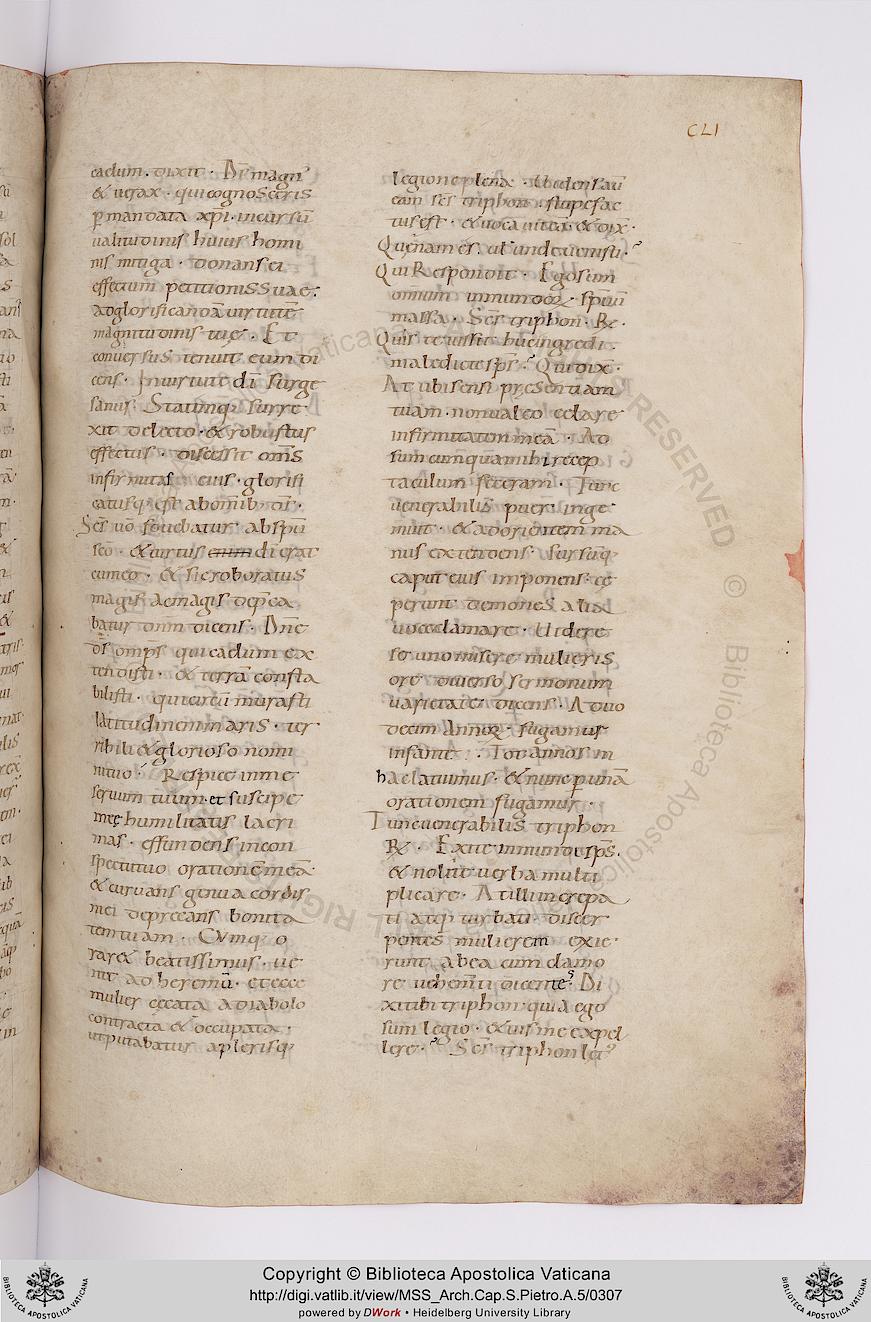 CLI
caelum. dixit · Ds̄ magn᾽
& uerax · qui cognosceris
ꝑ mandata xp̄i · incursū
ualitudinis huius homi
nis mitiga · donans ei
effectum petitionis suae:
ad glorificandā uirtutē
magnitudinis tuę · Et
conuersus tenuit eum di
cens · In uirtute dī surge
sanus; Statimq; surre
xit de lecto · & robustus
effectus · discessit om̄s
infirmitas eius · glorifi
catusq; est ab omīb; ds̄ ·
Sc̄s uō fouebatur ab sp̄u
sc̄o · & uirtus enim dī erat
cum eo · & sic roboratus
magis ac magis dep̄ca
batur dn̄m dicens · Dn̄e
ds̄ omp̄s qui caelum ex
tendisti · & terrā consta
bilisti · qui circū murasti
latitudinem maris · ter
ribili & glorioso nomi
ni tuo · Respice in me
seruum tuum · et suscipe
meę humilitatis lacri
mas · effundens in con
spectu tuo orationē meā
& curuans genua cordis
mei deprecans bonita
tem tuam · Cumq; o
rar& beatissimus · ue
nit ad heremū · et ecce
mulier cęcata a diabolo
contracta & occupata ·
ut putabatur a plerisq;
legione plena · Videns aū
eam sc̄s triphon · stupefac
tus est · & uocauit ea · & dix̄ ·
Quęnam es · ul̄ unde uenisti ·?
Qui respondit · Ego sum
omnium inmundoꝝ sp̄uū
massa · Sc̄s triphon · R̄ ·
Quis te iussit huc ingredi ·
maledicte sp̄s ·? Qui dix̄ ·
At ubi sensi pręsentiam
tuam · non ualeo celare
infirmitatem meā · Ad
sum cum quā mihi recep
taculum feceram · Tunc
uenerabilis puer · inge
muit · & ad orientem ma
nus extendens · sursūq;
caput eius imponens · cę
perunt demones alia
uoce clamare · Uidere
se uno misere mulieris
ore diuerso sermonum
uarietate dicens · A duo
decim annoꝝ fugamur
infante · Tot annos in
hac latuimus · & nunc ꝑ unā
orationem fugamur ·
Tunc uenerabilis triphon
R̄ · Exite inmundi sp̄s ·
& nolite uerba multi
plicare · At illi increpa
ti atq; turbati · discer
pentes mulierem exie
runt ab ea cum clamo
re uehemti dicentes · Di
xi tibi triphon · quia ego
sum legio · & uis me expel
lere ·? Sc̄s triphon let᾽
Copyright © Biblioteca Apostolica Vaticana
http://digi.vatlib.it/view/MSS_Arch.Cap.S.Pietro.A.5/0307
powered by DWork • Heidelberg University Library